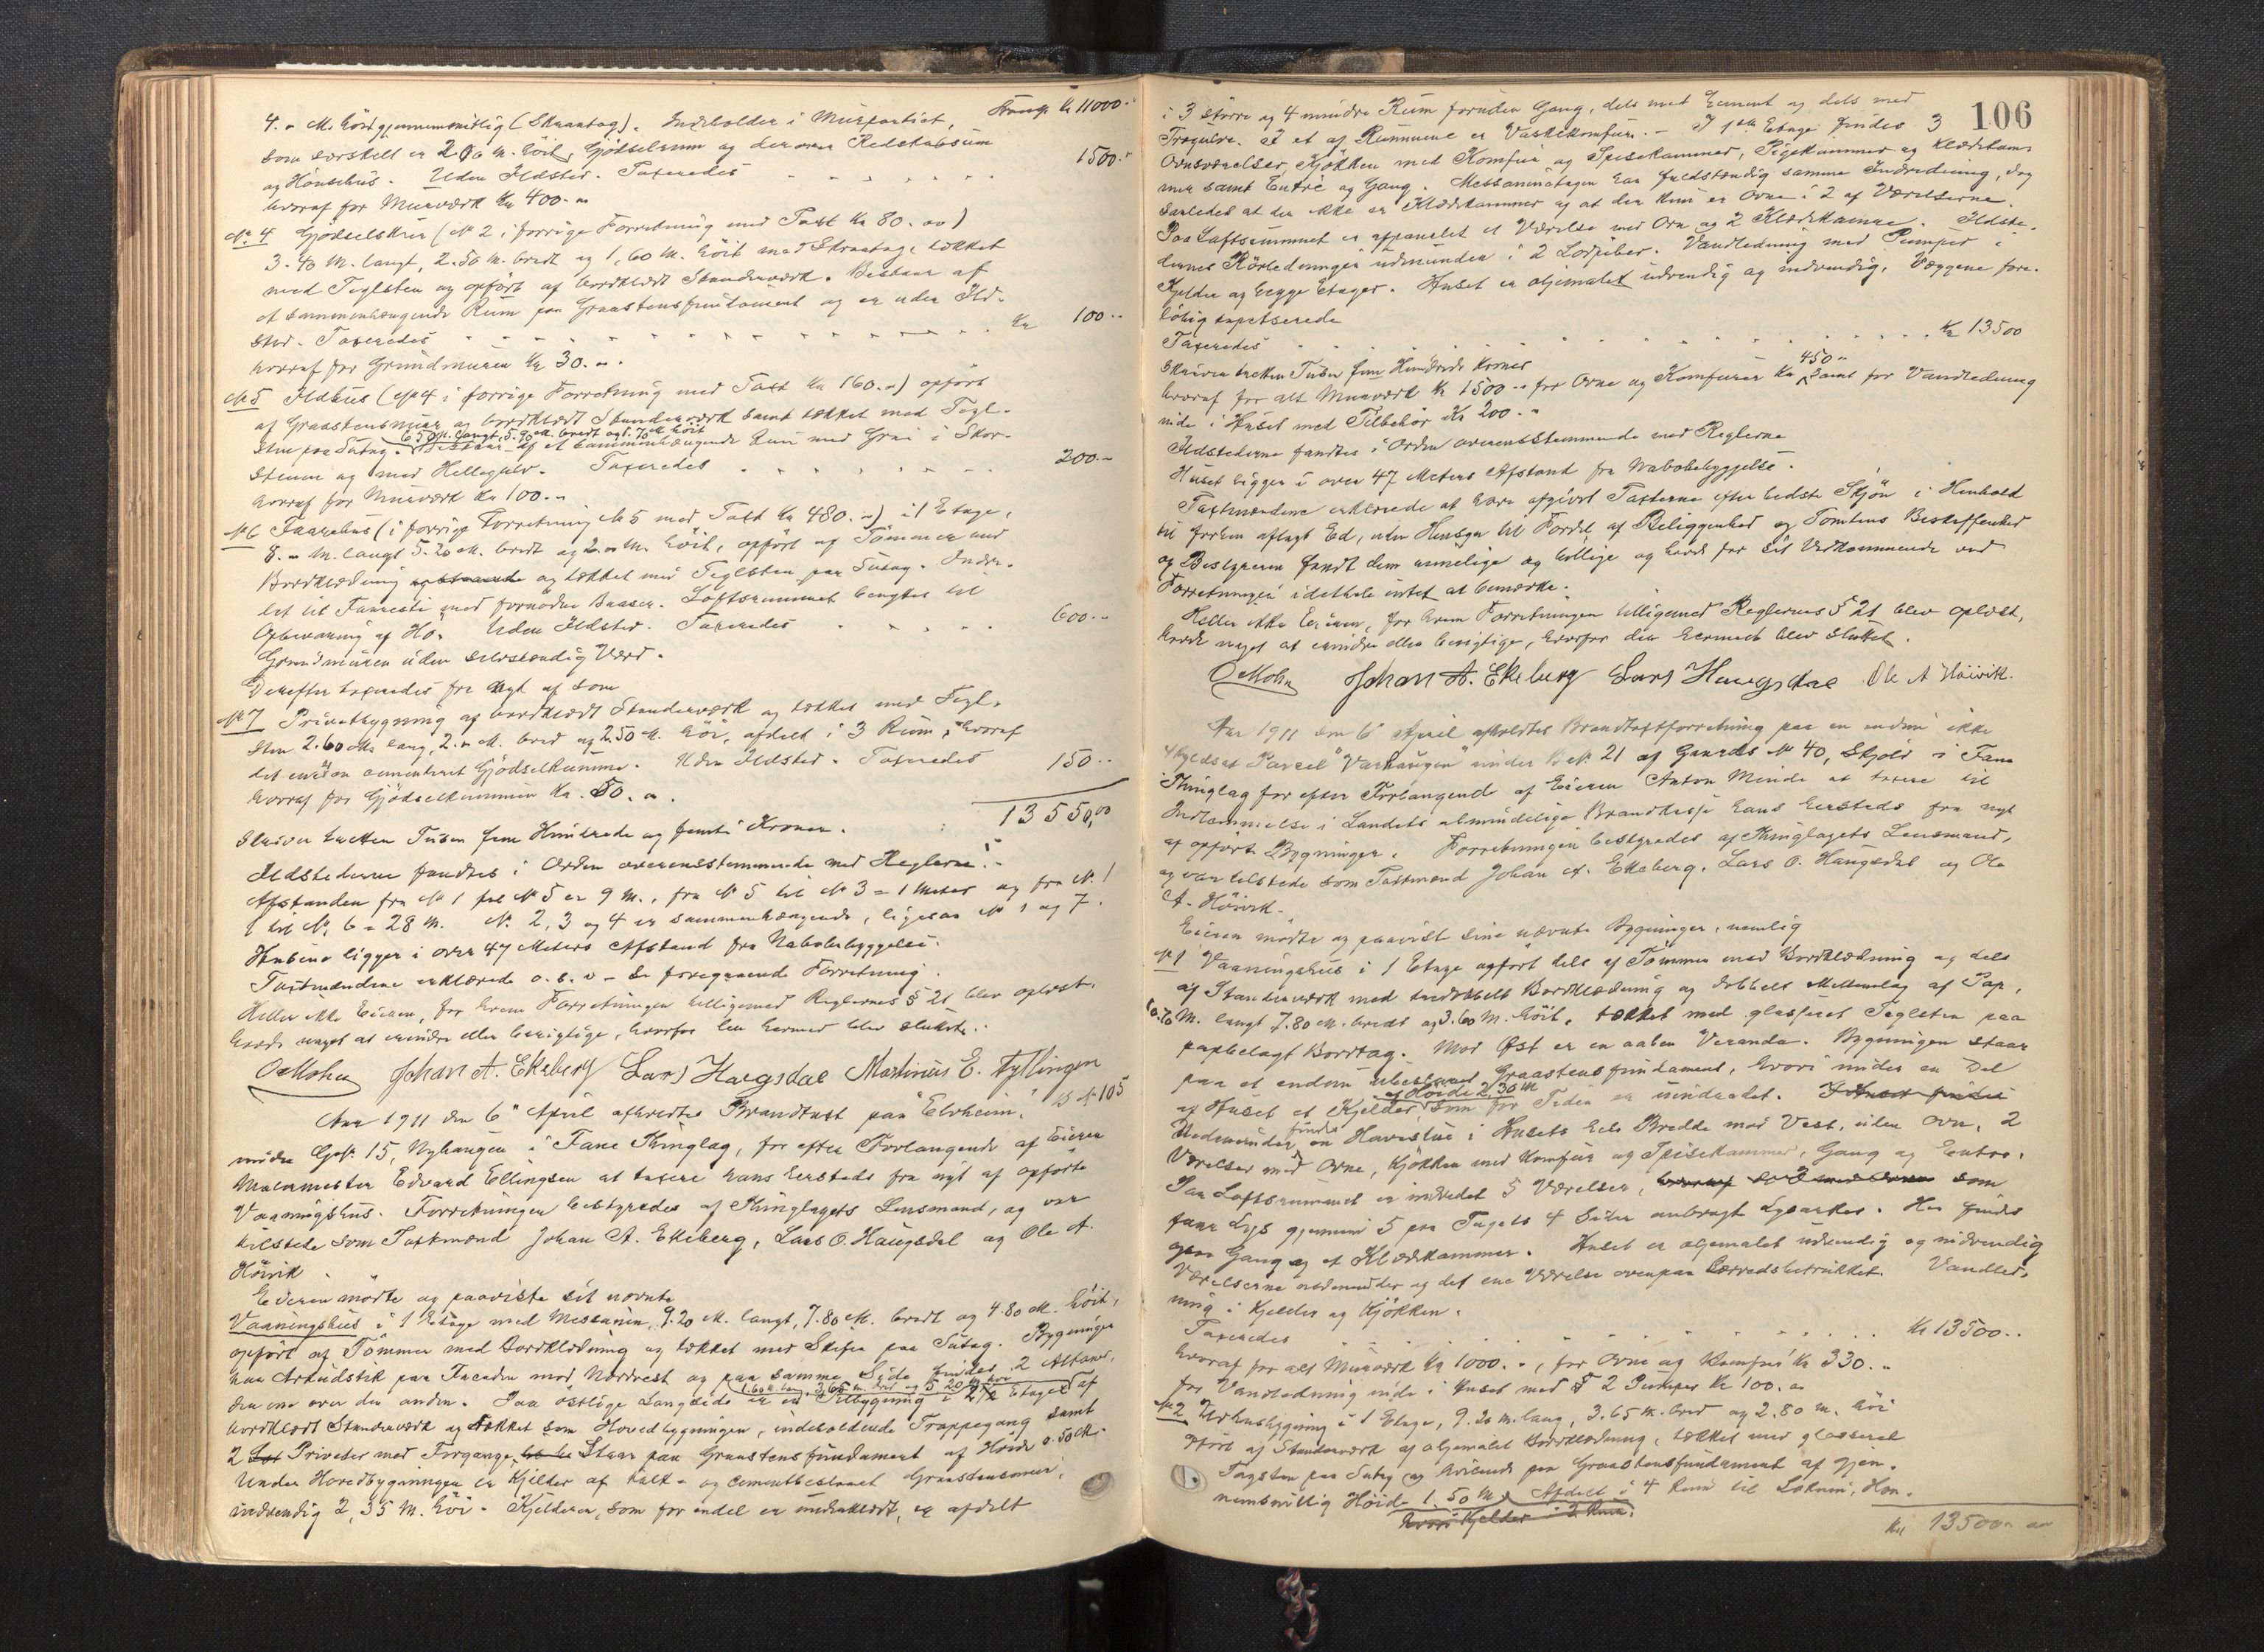 Transp. Kr 11000.-
4.- M. höi gjennemsnitlig (Skraatag). Indeholder i Murpartiet,
som særskelt er 2.00 M. höit, Gjödselrum og derover Redskabsrum
og Hönsehus. Uden Ildsted. Taxeredes 1500.-
hvoraf for Murværk Kr 400.-
No 4 Gjödselskur (No 2 i forrige Forretning med Taxt Kr 80.00)
3.40 M. langt, 2.50 M. bredt og 1,60 M. höit med Skraatag, tækket
med Teglsten og opfört af bordklædt Stenderværk. Bestaar af
et sammenhængende Rum paa Graastensfundament og er uden Ild-
sted. Taxeredes Kr 100.-
hvoraf for Grundmuren Kr 30.-
No 5 Ildhus (No 4 i forrige Forretning med Taxt Kr 160.-) opfört
af Graastensmur og bordklædt Stenderværk samt tækket med Tegl-
6.50 M. langt, 5.90 M. bredt og 1.70 M. höit
sten paa Sutag. Bestaar af et sammenhængende Rum med Grue i Skor-
stenen og med Hellegulv. Taxeredes 200.-
hvoraf for Murværk Kr 100.-
No 6 Faarehus (i forrige Forretning No 5 med Taxt Kr 480.-) i 1 Etage,
8.- M. langt 5.20 M. bredt og 2.- M. höit, opfört af Tömmer med
Bordklædning og tækket med Teglsten paa Sutag. Inder-
let til Faaresti med fornödne Baaser. Loftsrummet benyttes til
Opbevaring af Hö. Uden Ildsted. Taxeredes 600.-
Grundmuren uden selvstændig Værd.
Derefter taxeredes fra nyt af som
No 7 Privetbygning af bordklædt Stenderværk og tækket med Tegl-
sten 2.60 M. lang, 2.- M. bred og 2.50 M. höi, afdelt i 3 Rum, hvoraf
det ene en cementeret Gjödselkumme. Uden Ildsted. Taxeredes 150.-
hvoraf for Gjödselkummen Kr. 50.-
13550,00
Skriver tretten Tusen fem Hundrede og femti Kroner.
Ildstederne fandtes i Orden overensstemmende med Reglerne.
Afstanden fra No 1 til No 5 er 9 M., fra No 5 til No 3 = 1 Meter og fra No. 1
til No. 6 = 28 M. No. 2, 3 og 4 er sammenhængende, ligesaa No 1 og 7.
Husene ligger i over 47 Meters Afstand fra Nabobebyggelse.
Taxtmændene erklærede o.s.v. - Se foregaaende Forretning.
Heller ikke Eieren, for hvem Forretningen tilligemed Reglernes § 21 blev oplæst,
havde noget at erindre eller berigtige, hvorfor den hermed blev sluttet.
O Mohn Johan A. Ekeberg Lars Haugsdal Martinus E. Tyllingen
B No 105
Aar 1911 den 6te April afholdtes Brandtaxt paa "Elvheim",
under Gno. 15, Nyhaugen i Fane Thinglag, for efter Forlangende af Eieren
Malermester Edvard Ellingsen at taxere hans hersteds fra nyt af opförte
Vaaningshus. Forretningen bestyredes af Thinglagets Lensmand, og var
tilstede som Taxtmænd Johan A. Ekeberg, Lars O. Haugsdal og Ole A.
Höivik.
Eieren mödte og paaviste sit nævnte
Vaaningshus i 1 Etage med Messanin, 9.20 M. langt, 7.80 M. bredt og 4.80 M. höit,
opfört af Tömmer med Bordklædning og tækket med Skifer paa Sutag. Bygningen
har Arkudstik paa Facaden mod Nordvest og paa samme Side findes 2 Altaner,
1.60 M. lang, 3.65 M. bred og 5.20 M. höi
den ene over den anden. Paa östlige Langside er en Tilbygning i 2 1/2 Etager af
bordklædt Stenderværk og tækket som Hovedbygningen, indeholdende Trappegang samt
2 Priveter med Forgange. Staar paa Graastensfundament af Höide 0.50 M.
Under Hovedbygningen er Kjelder af kalk- og cementbestrøget Graastensmur,
indvendig 2,35 M. höi. Kjelderen, som for endel er indreklædt, er afdelt
106
i 3 större og 4 mindre Rum foruden Gang, dels med Cement og dels med
Trægulve. I et af Rummene er Vaskekomfur. - I 1ste Etage findes 3
Ovnsværelser, Kjökken med Komfur og Spisekammer, Pigekammer og Klædekam-
mer samt Entré og Gang. Messaninetagen har fuldstændig samme Indredning, dog
saaledes at der ikke er Klædekammer og at der kun er Ovne i 2 af Værelserne.
Paa Loftsrummet er afpanelet et Værelse med Ovn og 2 Klædekamre. Ildste-
dernes Rörledninger udmunder i 2 Lodpiber. Vandledning med Pumper i
Kjelder og begge Etager. Huset er oljemalet udvendig og indvendig, Væggene fore-
löbig tapetserede
Taxeredes Kr 13500
Skriver tretten Tusen fem Hundrede Kroner
450.-
hvoraf for alt Murværk Kr 1500.- for Ovne og Komfurer Kr samt for Vandledning
inde i Huset med Tilbehör Kr 200.-
Ildstederne fandtes i Orden overensstemmende med Reglerne
Huset ligger i over 47 Meters Afstand fra Nabobebyggelse.
Taxtmændene erklærede at have afgivet Taxterne efter bedste Skjön i Henhold
til forhen aflagt Ed, uden Hensyn til Fordel af Beliggenhed og Tomtens Beskaffenhed
og Bestyreren fandt dem rimelige og billige og havde for sit Vedkommende ved
Forretningen idethele intet at bemærke.
Heller ikke Eieren, for hvem Forretningen tilligemed Reglernes § 21 blev oplæst,
havde noget at erindre eller berigtige, hvorfor den hermed blev sluttet.
O Mohn Johan A. Ekeberg Lars Haugsdal Ole A Höivik.
Aar 1911 den 6te April afholdtes Brandtaxtforretning paa en endnu ikke
skyldsat Parcel "Varhaugen" under Bno. 21 af Gaards No 40, Skjold i Fane
Thinglag for efter Forlangende af Eieren Anton Minde at taxere til
Indlemmelse i Landets almindelige Brandkasse hans hersteds fra nyt
af opförte Bygninger. Forretningen bestyredes af Thinglagets Lensmand,
og var tilstede som Taxtmænd Johan A. Ekeberg, Lars O. Haugsdal og Ole
A. Höivik.
Eieren mödte og paaviste sine nævnte Bygninger, nemlig
No 1 Vaaningshus i 1 Etage opfört dels af Tömmer med Bordklædning og dels
af Stenderværk med tredobbelt Bordklædning og dobbelt Mellemlag af Pap,
10.70 M. langt 7.80 M. bredt og 3.60 M. höit, tækket med glasseret Teglsten paa
papbelagt Bordtag. Mod Öst er en aaben Veranda. Bygningen staar
paa et endnu ubestrøget Graastensfundament, hvori under en Del
af Höide 2,30 M
af Huset et Kjelder, som for Tiden er uindredet.
Nedenunder findes en Havestue i Husets hele Bredde mod Vest, uden Ovn, 2
Værelser med Ovne, Kjökken med Komfur og Spisekammer, Gang og Entre.
Paa Loftsrummet er indredet 5 Værelser, som
faar Lys gjennem 5 paa Tagets 4 Sider anbragte Lysarker. Her findes
ogsaa Gang og et Klædekammer. Huset er oljemalet udvendig og indvendig
Værelserne nedenunder og det ene Værelse ovenpaa lærredsbetrukket. Vandled-
ning i Kjelder og Kjökken.
Taxeredes Kr 13500.-
hvoraf for alt Murværk Kr 1000.-, for Ovne og Komfur Kr 330.-
for Vandledning inde i Huset med 2 Pumper Kr 100.-
No 2 Udhusbygning i 1 Etage, 9.20 M. lang, 3.65 M. bred og 2.80 M. höi
opfört af Stenderværk af oljemalet Bordklædning, tækket med glasseret
Tagsten paa Sutag og hvilende paa Graastensfundament af gjen-
nemsnitlig Höide 1.50 M. Afdelt i 4 Rum til Lokum, Hön-
hvori Kjelder i 2 Rum.
Kr 13500.-